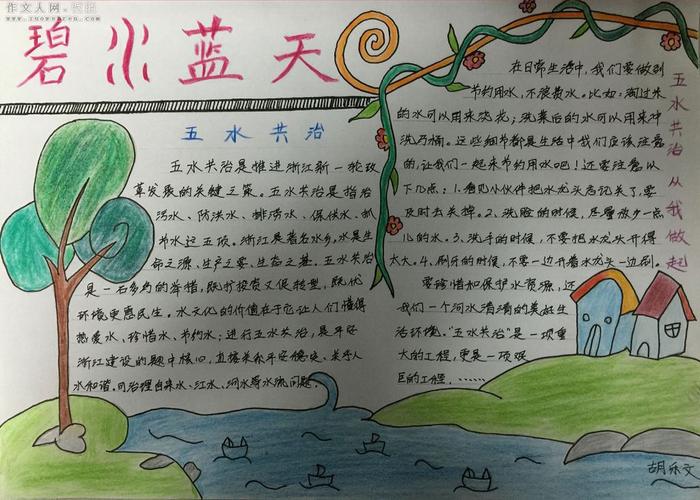 作文人网·板报
www.zuowenren.com
碧水蓝天
五水共治
五水共治是推进浙江新一轮改
革发展的关键之策。五水共治是指治
污水、防洪水、排涝水、保供水、抓
节水这五项。浙江是著名水乡,水是生
命之源、生产之要、生态之基。五水共治
是一石多鸟的举措,既扩投资又促转型,既优
环境更惠民生。水文化的价值在于它让人们懂得
热爱水、珍惜水、节约水;进行五水共治,是平安
浙江建设的题中核心,直接关系平安稳定、关乎人
水和谐。可治理自来水、江水、河水等水流问题。
在日常生活中,我们要做到
节约用水,不浪费水。比如:淘过米
的水可以用来浇花;洗菜后的水可以用来冲
洗马桶。这些细节都是生活中我们应该注意
的,让我们一起来节约用水吧!还要注意以
下几点:1.看见小伙伴把水龙头忘记关了,要
及时去关掉。2、洗脸的时候,尽量放少一点
儿的水。3、洗手的时候,不要把水龙头开得
太大。4、刷牙的时候,不要一边开着水龙头一边刷。
要珍惜和保护水资源,还
我们一个河水清清的美好生
活环境。"五水共治"是一项重
大的工程,更是一项艰
巨的工程,……
五水共治从我做起
胡乐文